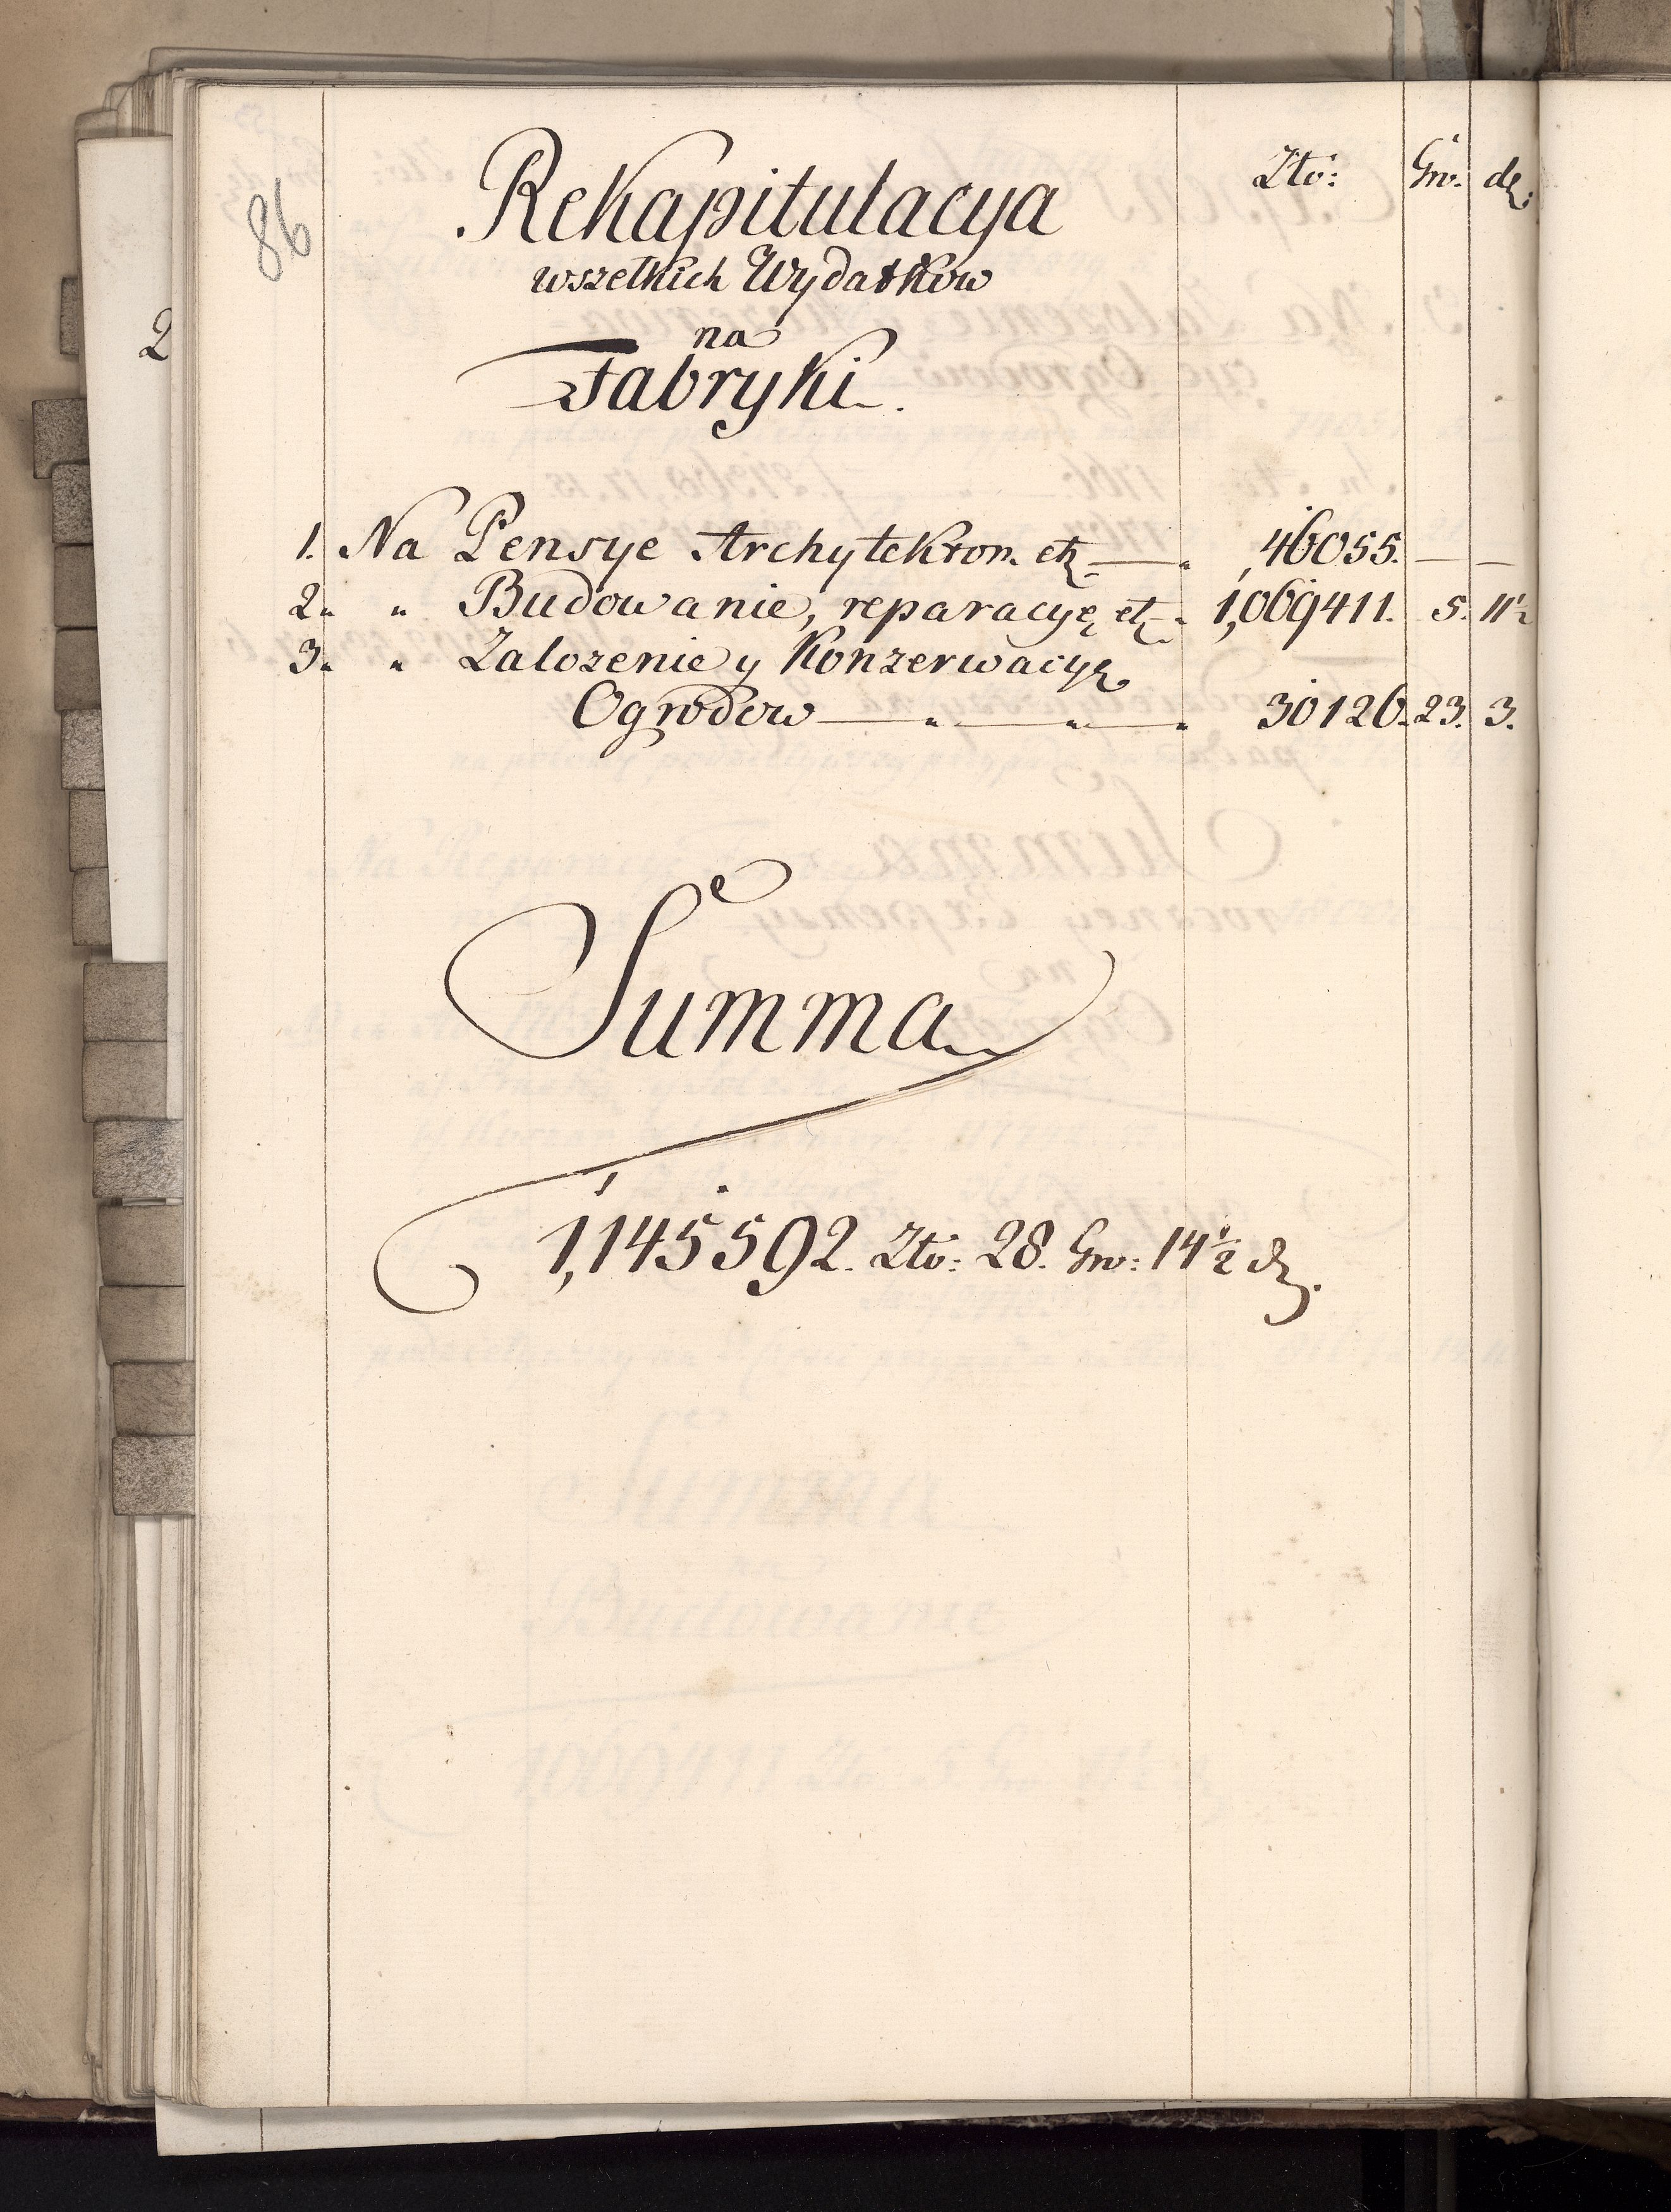 86
Zło: Gro. dę.
Rekapitulacya
wszelkich Wydatkow
na
Fabryki.
1. Na Pensye Architektom. etz. — „ 46055. — —
2. „ Budowanie, reparacyę, etz. „ 1,069411. 5. 11½
3. „ Zalozenie y Konzerwacyę
Ogrodow — „ — „ — „ 30126. 23. 3.
Summa
1,145592. Zło: 28. Gro: 14½ dę.
2